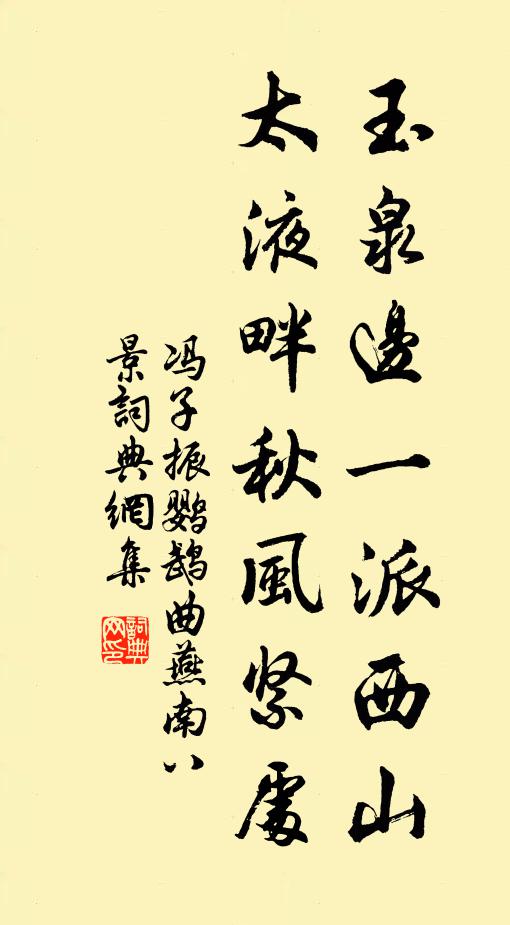 玉泉邊一派西山
太液畔秋風緊處
冯子振鹦鹉曲燕南八
景詞典網集
詞典网印